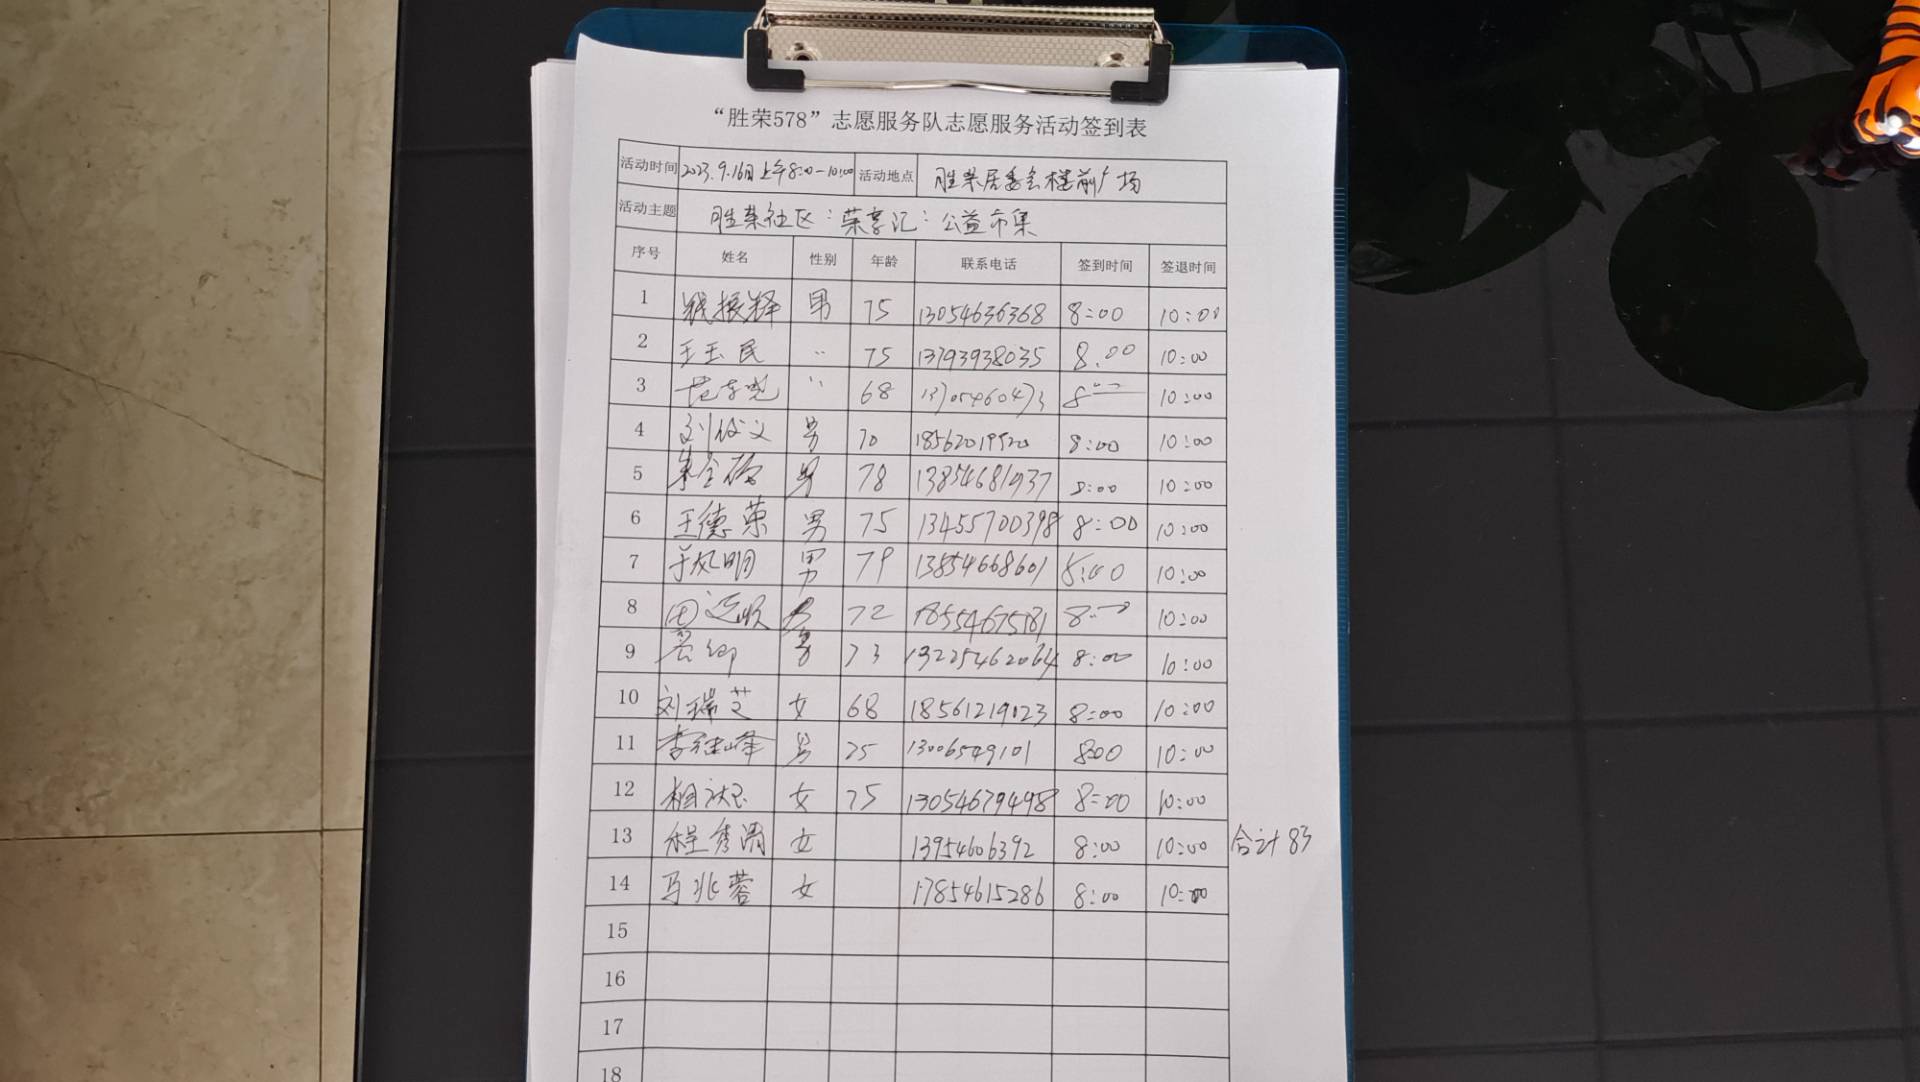 “胜荣578”志愿服务队志愿服务活动签到表
活动时间 2023.9.16日上午8:00-10:00 活动地点 胜荣居委会楼前广场
活动主题 胜荣社区：荣享汇：公益市集
序号 姓名 性别 年龄 联系电话 签到时间 签退时间
1 钱振铎 男 75 13054636368 8:00 10:00
2 王玉民 〃 75 13793938035 8.00 10:00
3 〃 68 13705460473 8 10:00
4 男 70 18562019520 8:00 10:00
5 男 78 13854681937 8:00 10:00
6 王德荣 男 75 13455700398 8:00 10:00
7 于凤明 男 79 13854668601 8:00 10:00
8 72 18554675181 10:00
9 男 73 13225462064 8:00 10:00
10 刘瑞芝 女 68 18561219023 8:00 10:00
11 李继峰 男 75 13006549101 8:00 10:00
12 女 75 13054679498 8:00 10:00
13 程秀 女 13954606392 8:00 10:00 合计83
14 马兆蓉 女 17854615286 8:00 10:00
15
16
17
18